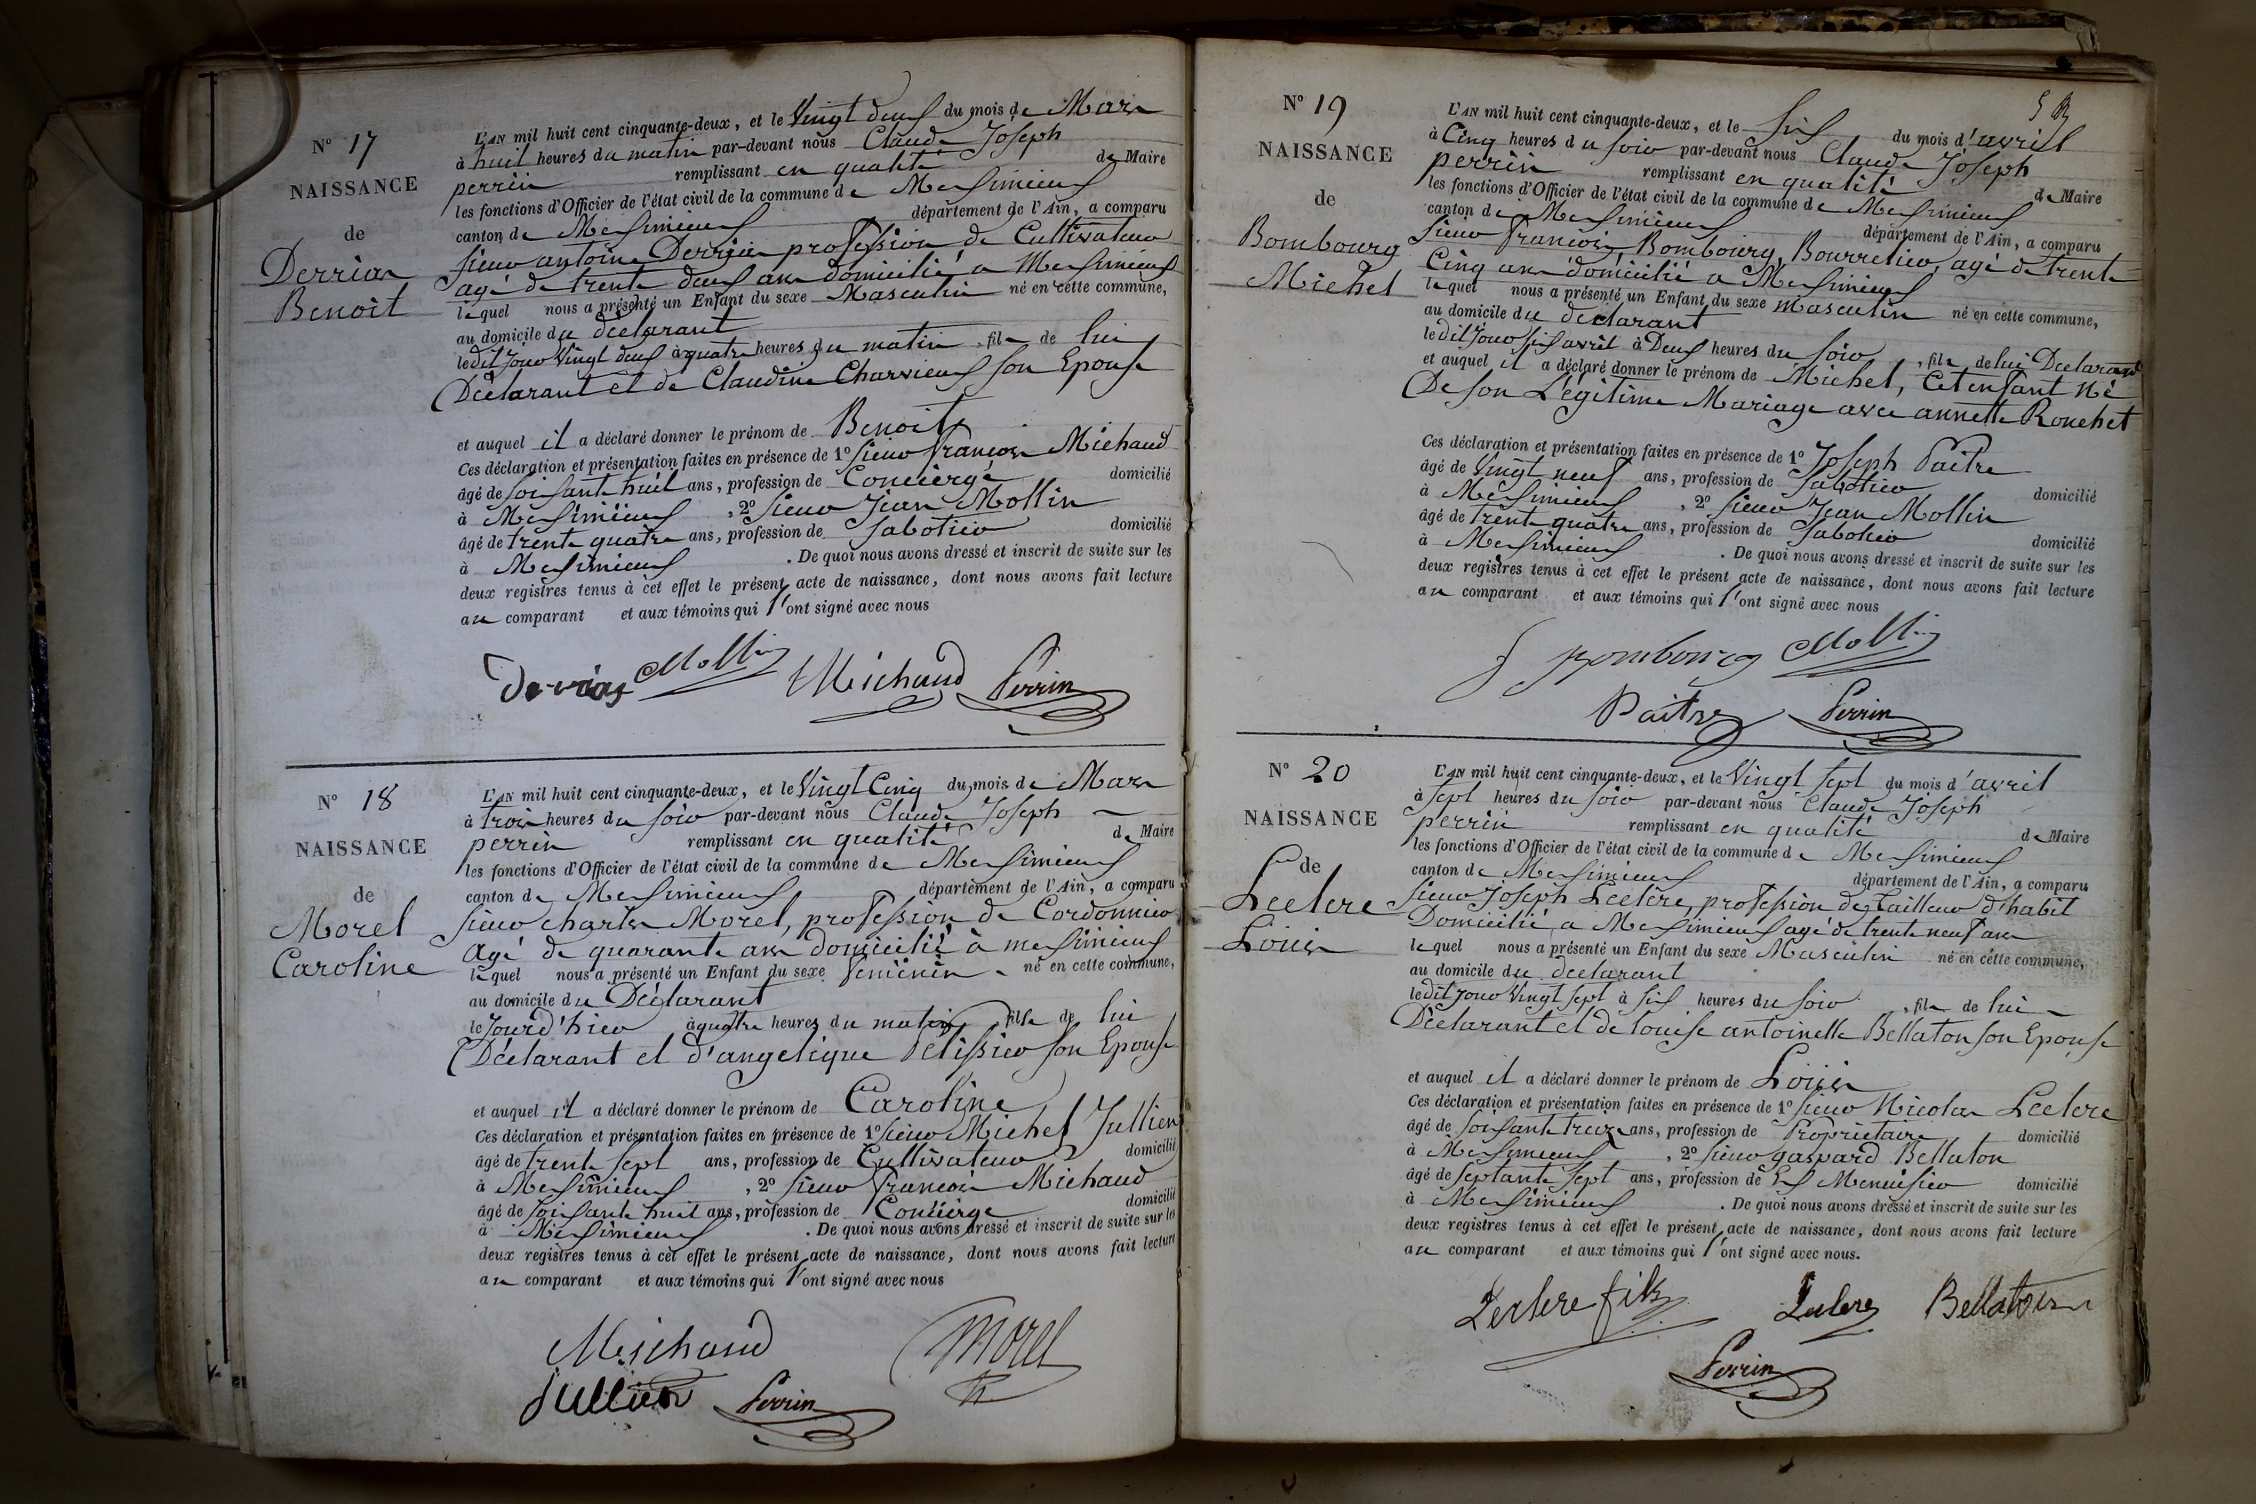 N° 17
NAISSANCE
de
Derrias
Benoit
L'AN mil huit cent cinquante-deux, et le Vingt deux du mois de Mars
à huit heures du matin par-devant nous Claude Joseph
perrin remplissant en qualité de Maire
les fonctions d'Officier de l'état civil de la commune de Meximieux
canton de Meximieux département de l'Ain, a comparu
sieur antoine Derrias profession de Cultivateur
agé de trente deux ans domicilié a Meximieux
lequel nous a présenté un Enfant du sexe Masculin né en cette commune,
au domicile du déclarant
ledit jour Vingt deux à quatre heures du matin fils de lui
Déclarant et de Claudine Charvieux son Epouse
et auquel il a déclaré donner le prénom de Benoit
Ces déclaration et présentation faites en présence de 1° sieur françois Michaud
âgé de soixante huit ans, profession de Concierge domicilié
à Meximieux , 2° sieur Jean Mollin
âgé de trente quatre ans, profession de Sabotier domicilié
à Meximieux . De quoi nous avons dressé et inscrit de suite sur les
deux registres tenus à cet effet le présent acte de naissance, dont nous avons fait lecture
au comparant et aux témoins qui l'ont signé avec nous
Derrias Mollin Michaud Perrin
N° 18
NAISSANCE
de
Morel
Caroline
L'AN mil huit cent cinquante-deux, et le Vingt Cinq du mois de Mars
à trois heures du soir par-devant nous Claude Joseph
perrin remplissant en qualité de Maire
les fonctions d'Officier de l'état civil de la commune de Meximieux
canton de Meximieux département de l'Ain, a comparu
sieur charles Morel, profession de Cordonnier
Agé de quarante ans domicilié à meximieux
lequel nous a présenté un Enfant du sexe feminin né en cette commune,
au domicile du Déclarant
le Jourd'hier à quatre heures du matin fille de lui
Déclarant et d'angelique Pelissier son Epouse
et auquel il a déclaré donner le prénom de Caroline
Ces déclaration et présentation faites en présence de 1° sieur Michel Jullien
âgé de trente sept ans, profession de Cultivateur domicilié
à Meximieux , 2° sieur francois Michaud
âgé de soixante huit ans, profession de Concierge domicilié
à Meximieux . De quoi nous avons dressé et inscrit de suite sur les
deux registres tenus à cet effet le présent acte de naissance, dont nous avons fait lecture
au comparant et aux témoins qui l'ont signé avec nous
Michaud Morel
Jullien Perrin
5
N° 19
NAISSANCE
de
Bombourg
Michel
L'AN mil huit cent cinquante-deux, et le Six du mois d'avril
à Cinq heures du soir par-devant nous Claude Joseph
perrin remplissant en qualité de Maire
les fonctions d'Officier de l'état civil de la commune de Meximieux
canton de Meximieux département de l'Ain, a comparu
Sieur francois Bombourg, Bourrelier, agé de trente
Cinq ans domicilié a Meximieux
lequel nous a présenté un Enfant du sexe masculin né en cette commune,
au domicile du déclarant
ledit jour six avril à Deux heures du soir , fils de lui Declarant
et auquel il a déclaré donner le prénom de Michel, Cet enfant Né
De son Légitime Mariage avec annette Rouchet
Ces déclaration et présentation faites en présence de 1° Joseph Paitre
âgé de Vingt neuf ans, profession de Sabotier domicilié
à Meximieux , 2° sieur Jean Mollin
âgé de trente quatre ans, profession de Sabotier domicilié
à Meximieux . De quoi nous avons dressé et inscrit de suite sur les
deux registres tenus à cet effet le présent acte de naissance, dont nous avons fait lecture
au comparant et aux témoins qui l'ont signé avec nous
f Bombourg Mollin
Paitre Perrin
N° 20
NAISSANCE
de
Leclerc
Louis
L'AN mil huit cent cinquante-deux, et le Vingt sept du mois d'avril
à sept heures du soir par-devant nous Claude Joseph
perrin remplissant en qualité de Maire
les fonctions d'Officier de l'état civil de la commune de Meximieux
canton de Meximieux département de l'Ain, a comparu
Sieur joseph Leclerc, profession de tailleur d'habit
Domicilié a Meximieux agé de trente neuf ans
lequel nous a présenté un Enfant du sexe Masculin né en cette commune,
au domicile du declarant
ledit jour Vingt sept à six heures du soir , fils de lui
Déclarant et de louise antoinette Bellaton son Epouse
et auquel il a déclaré donner le prénom de Louis
Ces déclaration et présentation faites en présence de 1° sieur Nicolas Leclerc
âgé de soixante treize ans, profession de Propriétaire domicilié
à Meximieux , 2° sieur gaspard Bellaton
âgé de septante sept ans, profession de Ex Menuisier domicilié
à Meximieux . De quoi nous avons dressé et inscrit de suite sur les
deux registres tenus à cet effet le présent acte de naissance, dont nous avons fait lecture
au comparant et aux témoins qui l'ont signé avec nous.
Leclerc fils Leclerc Bellaton
Perrin